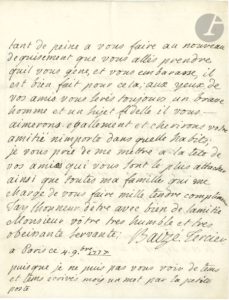 tant de peine a vous faire au nouveau
deguisement que vous allés prendre
quil vous gene, et vous embarasse, il
est bien fait pour cela; aux yeux de
vos amis vous serés toujours un brave
homme et un sujet fidelle il vous
aimerons egallement et cherirons votre
amitié nimporte dans quelle habits,
je vous prie de me mettre a la tete de
vos amis qui vous sont le plus attachés
ainsi que toutes ma famille qui me
charge de vous faire mille tendre compliment
Jay lhonneur detre avec bien de lamitié
Monsieur vôtre tres humble et tres
obeissante servante,
a Paris ce 4 9.bre 1777
puisque je ne puis pas vous voir de tems
en tems ecrivés moy un mot par la petite
poste